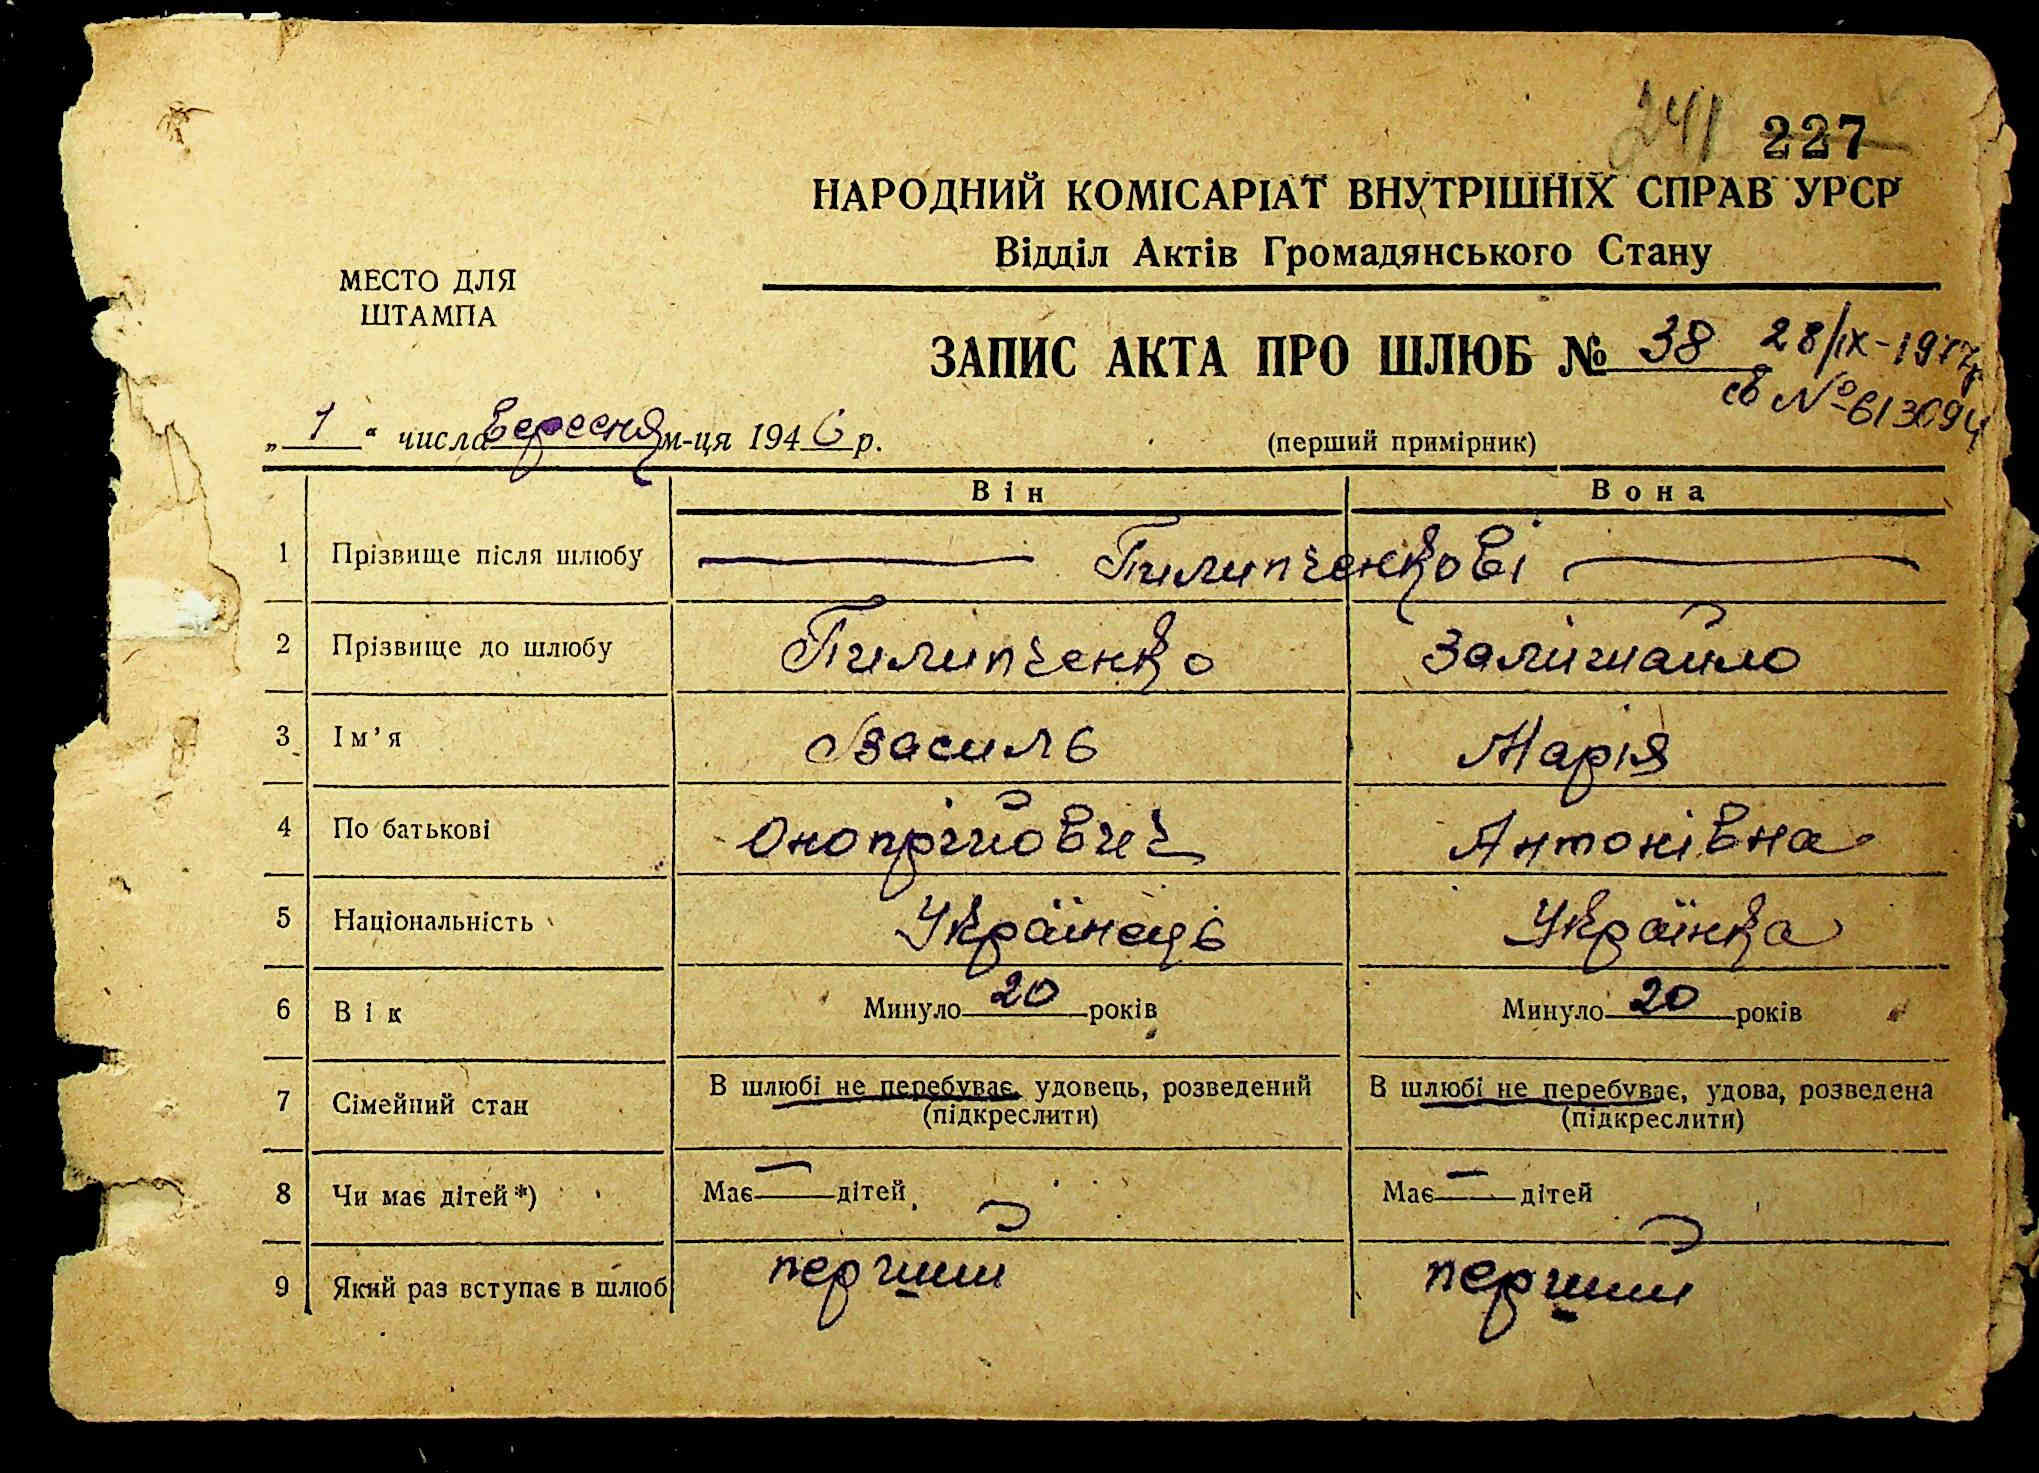 241 227
НАРОДНИЙ КОМІСАРІАТ ВНУТРІШНІХ СПРАВ УРСР
Відділ Актів Громадянського Стану
МЕСТО ДЛЯ
ШТАМПА
ЗАПИС АКТА ПРО ШЛЮБ № 38 28/IX-1977р
св №613094
„1“ числа вересня м-ця 1946 р. (перший примірник)
Він Вона
1 Прізвище після шлюбу Пилипченкові
2 Прізвище до шлюбу Пилипченко Залишайло
3 Ім’я Василь Марія
4 По батькові Онопрійович Антонівна
5 Національність Українець Українка
6 Вік Минуло 20 років Минуло 20 років
7 Сімейний стан В шлюбі не перебуває, удовець, розведений В шлюбі не перебуває, удова, розведена
(підкреслити) (підкреслити)
8 Чи має дітей*) Має — дітей Має — дітей
9 Який раз вступає в шлюб перший перший